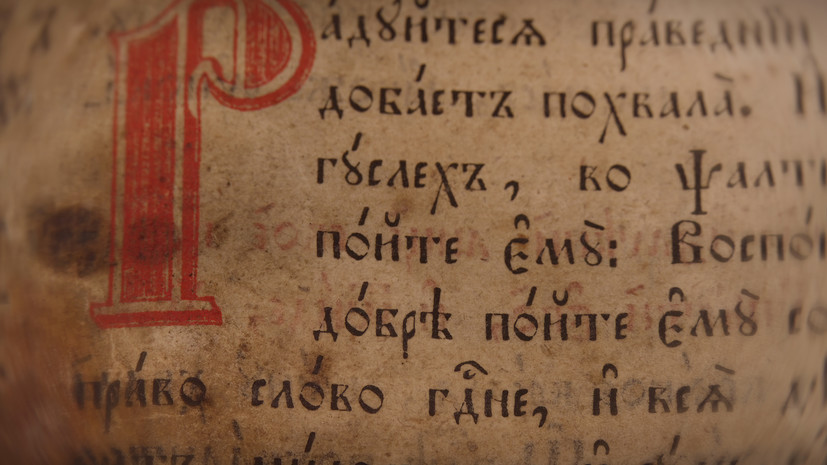 Ра́дꙋйтесѧ пра́веднїи
доба́етъ похвала̀.
гꙋ́слехъ, во ѱалти
по́йте є҆мꙋ̀: Воспо́й
до́брѣ по́йте є҆мꙋ̀ со
пра́во сло́во гд҇не, и҆ всѧ̀